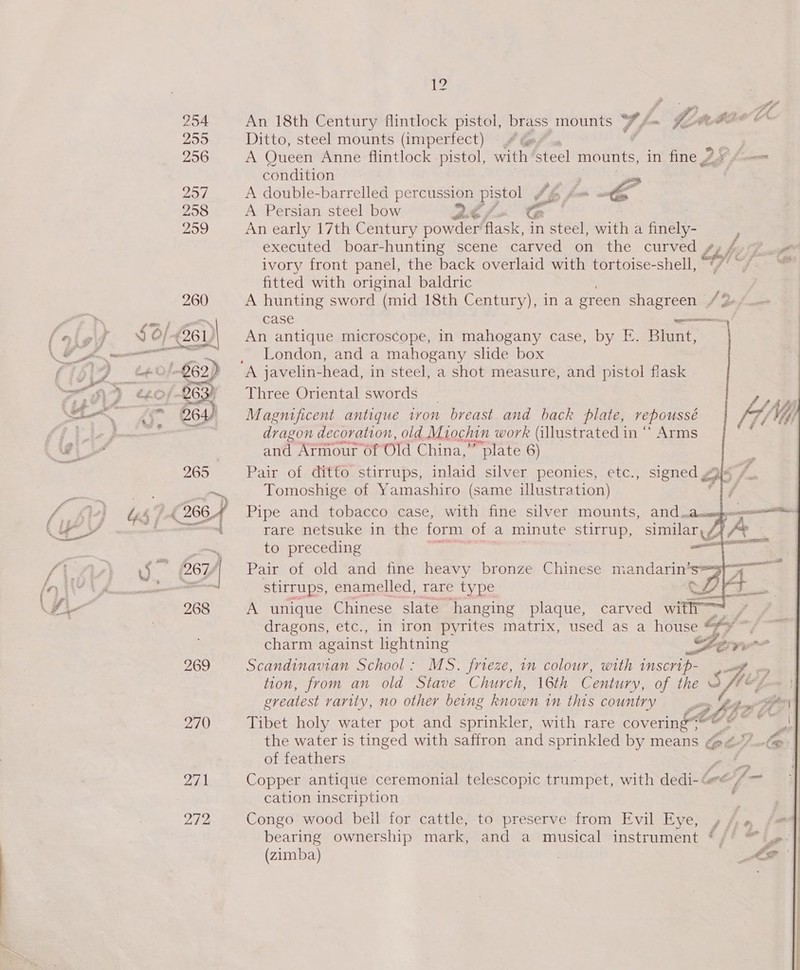 12
254 An 18th Century flintlock pistol, brass mounts
255 Ditto, steel mounts (imperfect)
256 A Queen Anne flintlock pistol, with steel mounts, in fine
condition
257 A double-barrelled percussion pistol
258 A Persian steel bow
259 An early 17th Century powder flask, in steel, with a finely-
executed boar-hunting scene carved on the curved
ivory front panel, the back overlaid with tortoise-shell,
fitted with original baldric
260 A hunting sword (mid 18th Century), in a green shagreen
case
261 An antique microscope, in mahogany case, by E. Blunt,
London, and a mahogany slide box
262 A javelin-head, in steel, a shot measure, and pistol flask
263 Three Oriental swords
264 Magnificent antique iron breast and back plate, repoussé
dragon decoration, old Miochin work (illustrated in “ Arms
and Armour of Old China,” plate 6)
265 Pair of ditto stirrups, inlaid silver peonies, etc., signed
Tomoshige of Yamashiro (same illustration)
266 Pipe and tobacco case, with fine silver mounts, and a
rare netsuke in the form of a minute stirrup, similar
to preceding
267 Pair of old and fine heavy bronze Chinese mandarin's
stirrups, enamelled, rare type
268 A unique Chinese slate hanging plaque, carved with
dragons, etc., in iron pyrites matrix, used as a house
charm against lightning
269 Scandinavian School : MS. frieze, in colour, with inscrip-
tion, from an old Stave Church, 16th Century, of the
greatest rarity, no other being known in this country
270 Tibet holy water pot and sprinkler, with rare covering
the water is tinged with saffron and sprinkled by means
of feathers
271 Copper antique ceremonial telescopic trumpet, with dedi-
cation inscription
272 Congo wood bell for cattle, to preserve from Evil Eye,
bearing ownership mark, and a musical instrument
(zimba)